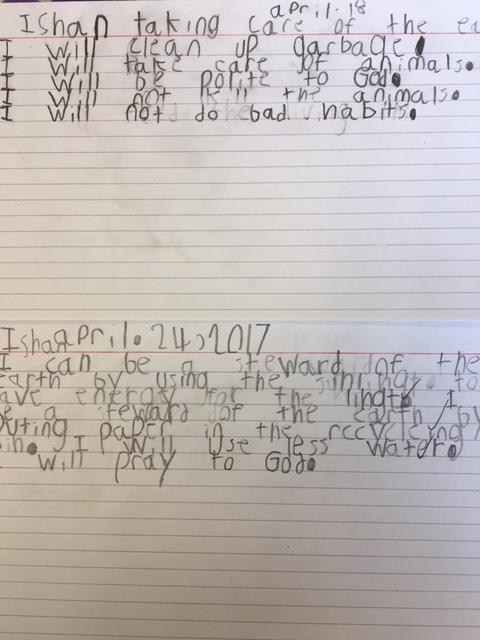 april. 18
Ishan taking care of the ea
I will clean up garbage.
I will take care of animals.
I will be polite to God.
I will not kill the animals.
I will not do bad habits.
Ishan april. 24, 2017
I can be a steward of the
earth by using the sunlingt to
ave energy for the lingts. I
e a steward of the earth by
uting paper in the rccycleing
in. I will use less water.
I will pray to God.